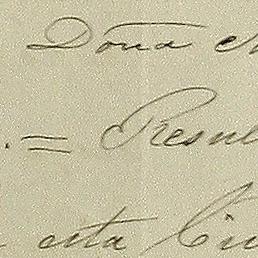 Doña
. = Resuel
esta Ciu